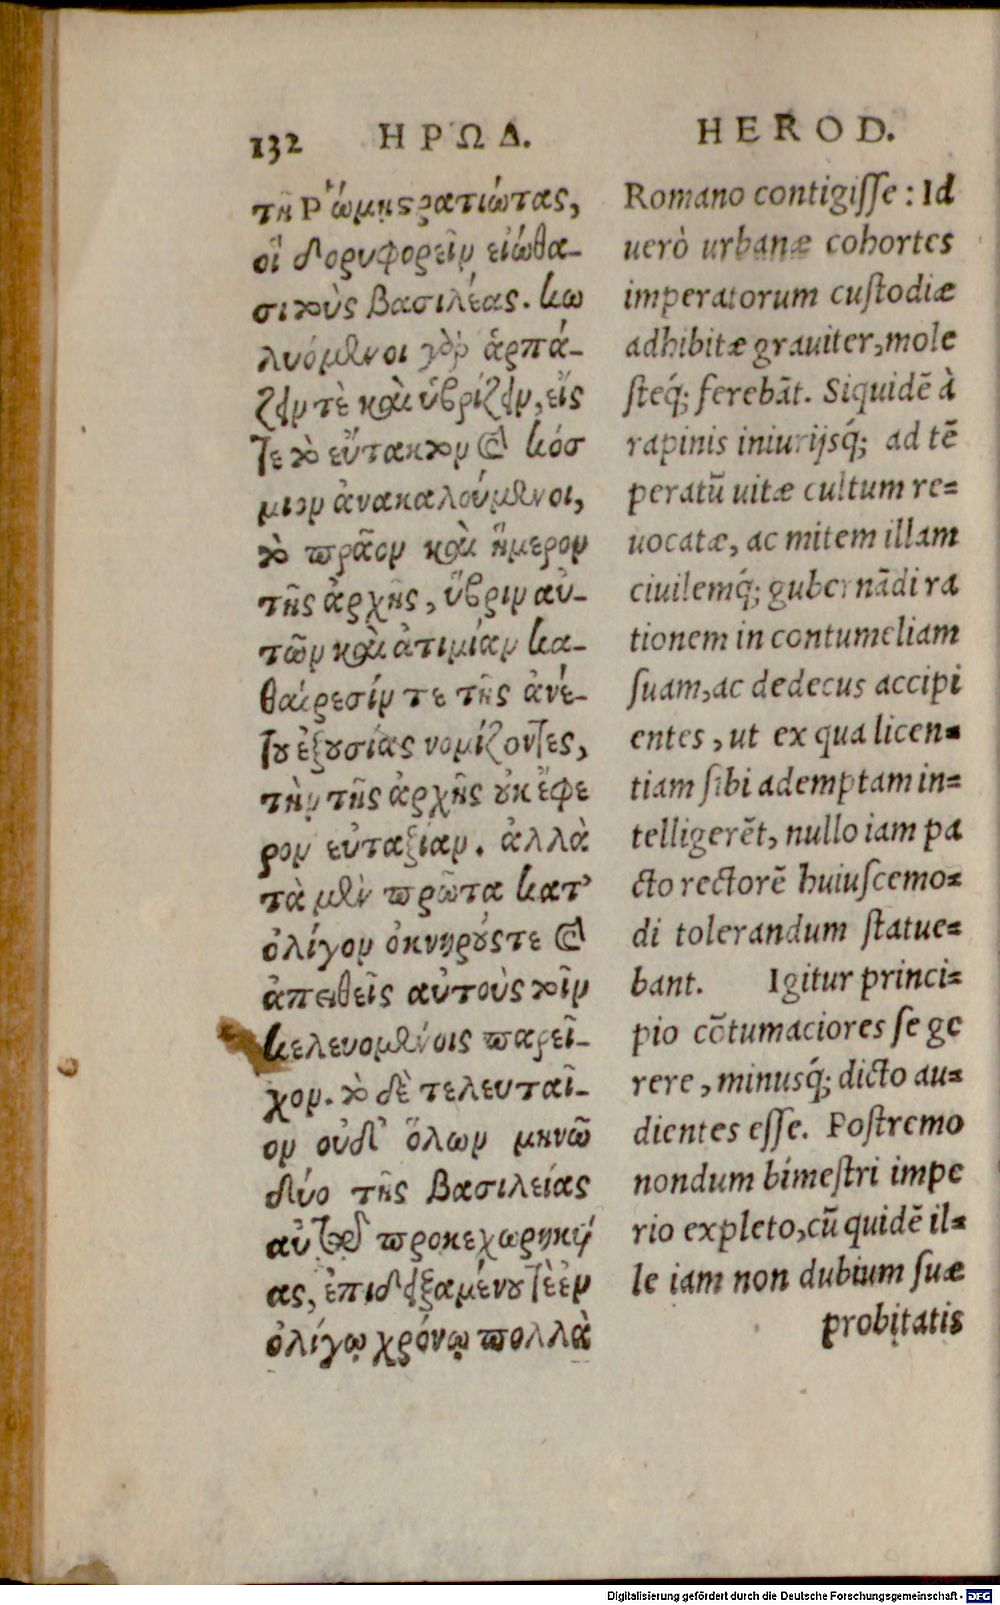 132 ΗΡΩΔ.
τῇ Ῥώμῃ στρατιώτας,
οἳ δορυφορεῖν εἰώθα-
σι τοὺς βασιλέας. κω
λυόμενοι γὰρ ἁρπά-
ζειν τὲ καὶ ὑβρίζειν, εἴς
τε τὸ εὔτακτον καὶ κόσ
μιον ἀνακαλούμενοι,
τὸ πρᾶον καὶ ἥμερον
τῆς ἀρχῆς, ὕβριν αὐ-
τῶν καὶ ἀτιμίαν κα-
θαίρεσίν τε τῆς ἀνέ-
του ἐξουσίας νομίζοντες,
τὴν τῆς ἀρχῆς οὐκ ἔφε
ρον εὐταξίαν. ἀλλὰ
τὰ μὲν πρῶτα κατ᾽
ὀλίγον ὀκνηρούς τε καὶ
ἀπειθεῖς αὐτοὺς τοῖν
κελευομένοις παρεῖ-
χον. τὸ δὲ τελευταῖ-
ον οὐδ᾽ ὅλων μηνῶ
δύο τῆς βασιλείας
αὐτοῦ προκεχωρηκυί
ας, ἐπιδειξαμένου τὲ ἐν
ὀλίγῳ χρόνῳ πολλὰ
HEROD.
Romano contigisse : Id
uerò urbanæ cohortes
imperatorum custodiæ
adhibitæ grauiter, mole
steq́; ferebãt. Siquidẽ à
rapinis iniurijsq́; ad tẽ
peratũ uitæ cultum re=
uocatæ, ac mitem illam
ciuilemq́; gubernãdi ra
tionem in contumeliam
suam, ac dedecus accipi
entes, ut ex qua licen=
tiam sibi ademptam in=
telligerẽt, nullo iam pa
cto rectorẽ huiuscemo=
di tolerandum statue=
bant. Igitur princi=
pio cõtumaciores se ge
rere, minusq́; dicto au=
dientes esse. Postremo
nondum bimestri impe
rio expleto, cũ quidẽ il=
le iam non dubium suæ
probitatis
Digitalisierung gefördert durch die Deutsche Forschungsgemeinschaft - DFG